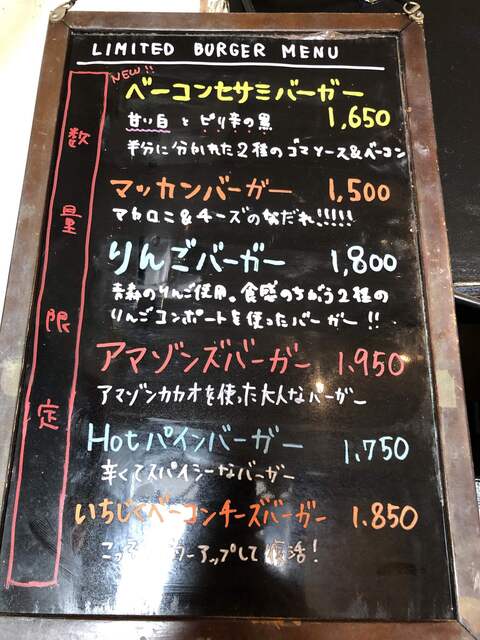 LIMITED BURGER MENU
NEW!!
数量限定
ベーコンセサミバーガー 1,650
甘い白とピリ辛の黒
半分に分かれた2種のゴマソース&ベーコン
マッカンバーガー 1,500
マカロニ&チーズのなだれ!!!!!
りんごバーガー 1,800
青森のりんご使用。食感のちがう2種の
りんごコンポートを使ったバーガー!!
アマゾンズバーガー 1,950
アマゾンカカオを使った大人なバーガー
Hotパインバーガー 1,750
辛くてスパイシーなバーガー
いちじくベーコンチーズバーガー 1,850
アップして復活!